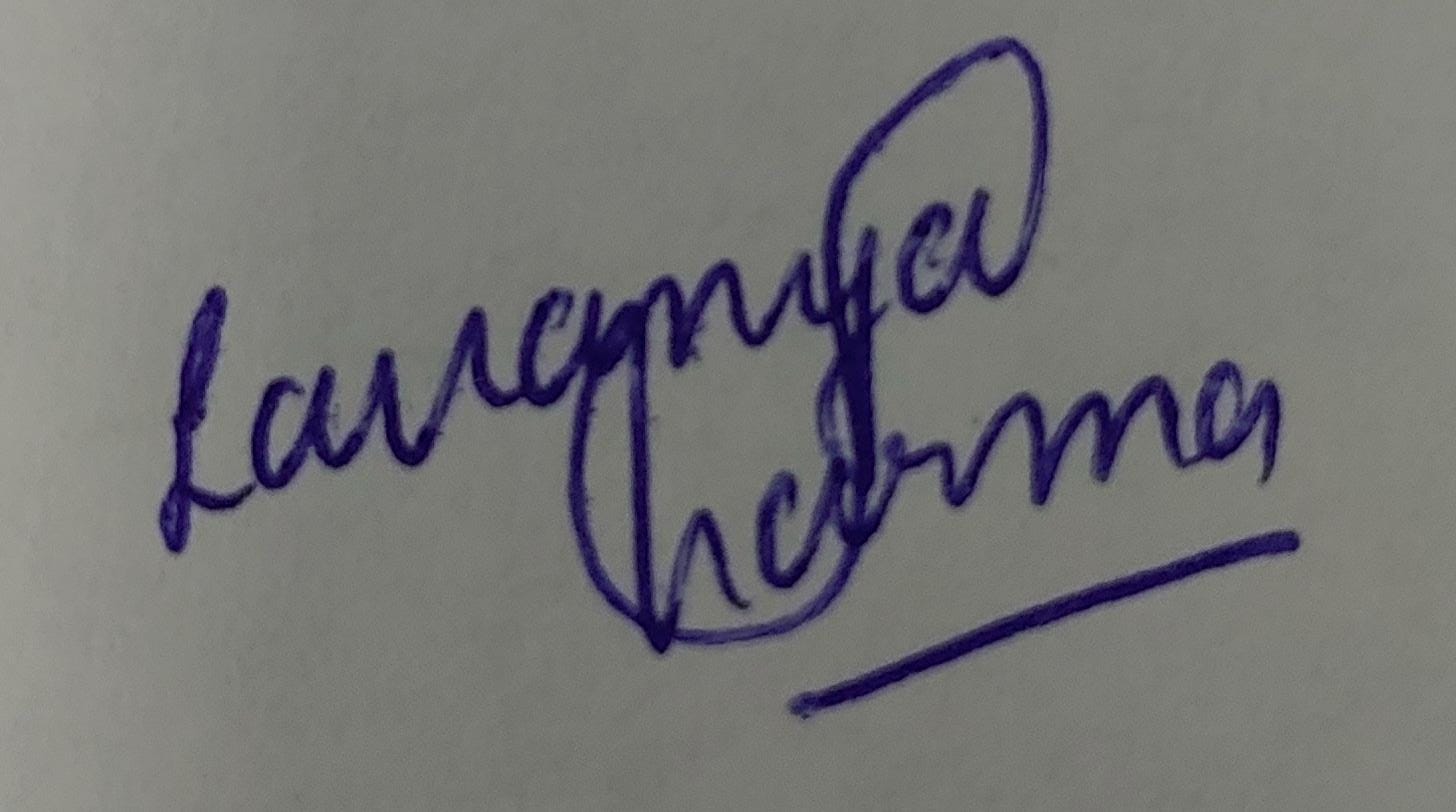 Lavanya
Sharma